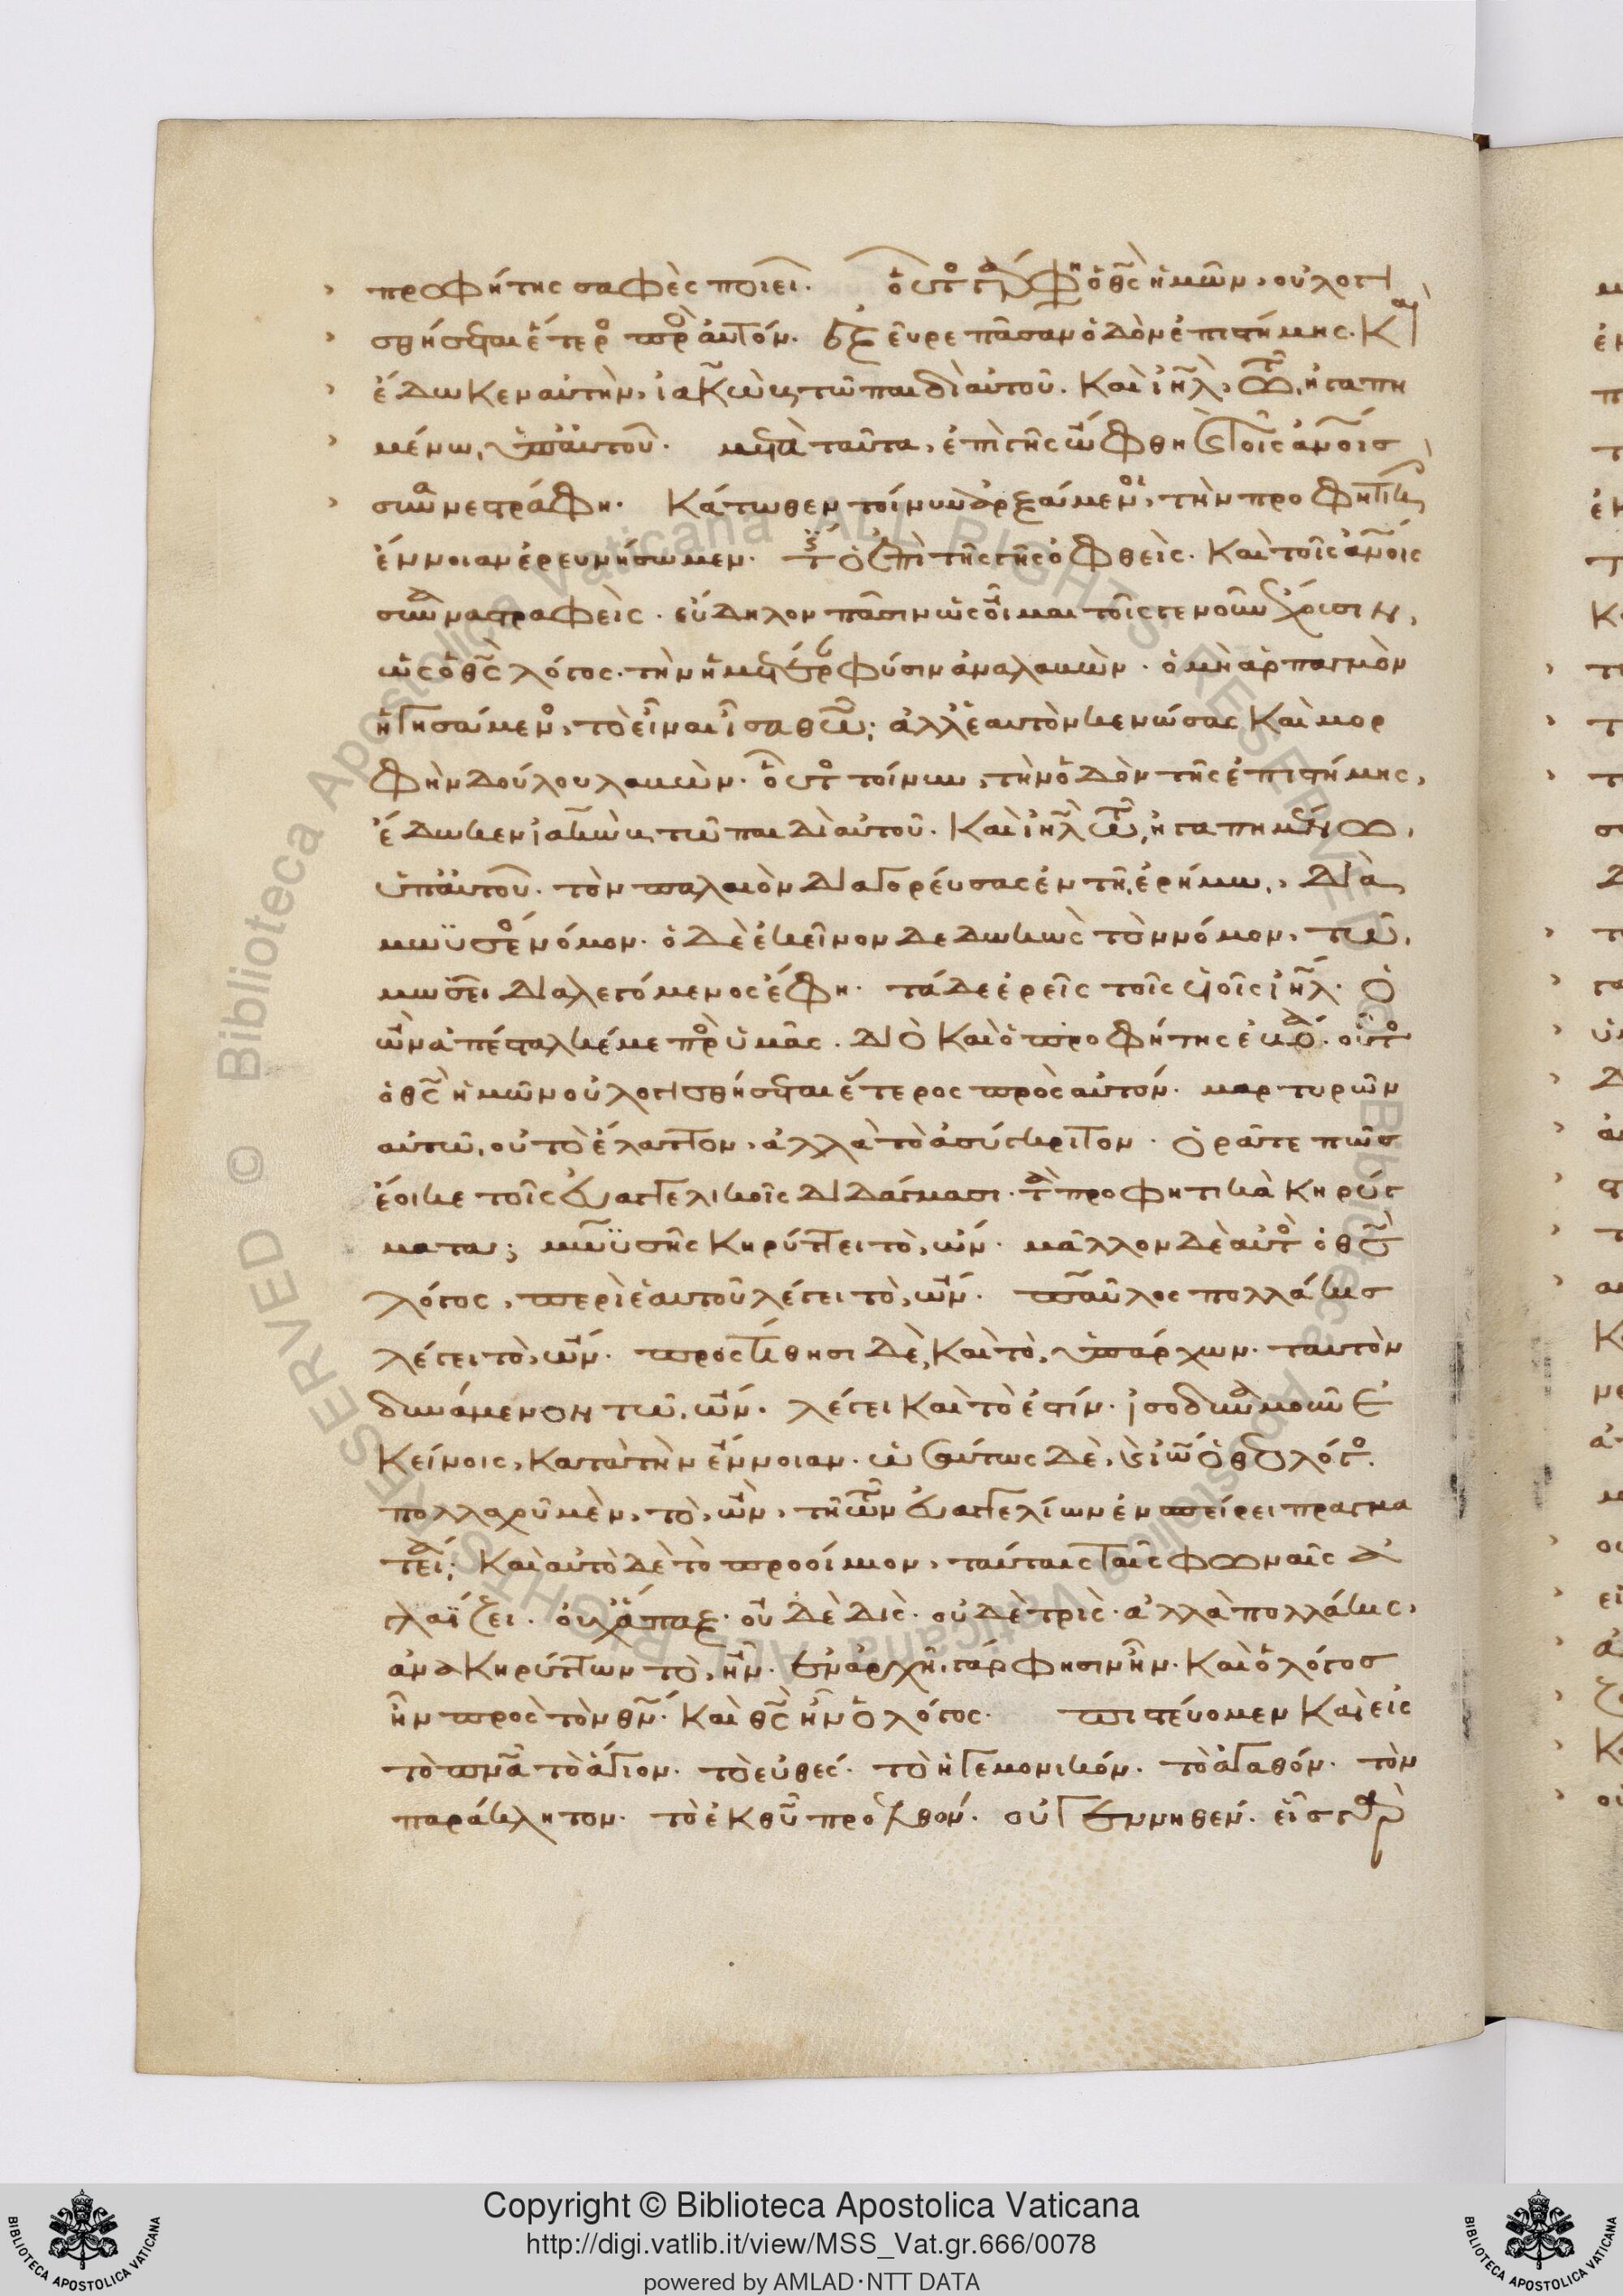 προφήτης σαφὲς ποιεῖ. οὗτος γάρ φη ὁ θς ἡμῶν, οὐ λογι
σθήσεται ἕτερος πρὸς αὐτόν. ἐξεῦρε πᾶσαν ὁδὸν ἐπιστήμης. καὶ
ἔδωκεν αὐτὴν, ἰακὼβ τῶ παιδὶ αὐτοῦ. καὶ ἰηλ τῶ ἠγαπη
μένω, ὑπ' αὐτοῦ. μετὰ ταῦτα, ἐπὶ τῆς γῆς ὤφθη καὶ τοῖς ἀνοις
συνανεστράφη. κάτωθεν τοίνυν ἀρξάμενοι, τὴν προφητικὴν
ἔννοιαν ἐρευνήσωμεν. τίς ὁ ἐπὶ τῆς γῆς ὀφθεὶς. καὶ τοῖς ἀνοις
συναναστραφεὶς. εὔδηλον πᾶσιν ὡς οἶμαι τοῖς γε νοῦν ἔχουσιν,
ὡς ὁ θς λόγος. τὴν ἡμετέραν φύσιν ἀναλαβὼν. ὁ μὴ ἁρπαγμὸν
ἡγησάμενος, τὸ εἶναι ἴσα θω; ἀλλ' ἑαυτὸν κενώσας καὶ μορ
φὴν δούλου λαβὼν. οὗτος τοίνυν, τὴν ὁδὸν τῆς ἐπιστήμης,
ἔδωκεν ἰακὼβ τῶ παιδὶ αὐτοῦ. καὶ ἰηλ τῶ ἠγαπημένω,
ὑπ' αὐτοῦ. τὸν παλαιὸν διαγορεύσας ἐν τῆ ἐρήμω, διὰ
μωϋσέος νόμον. ὁ δὲ ἐκεῖνον δεδωκὼς τὸν νόμον, τῶ
μωσεῖ διαλεγόμενος ἔφη. τάδε ἐρεῖς τοῖς υἱοῖς ἰηλ. ὁ
ὢν ἀπέσταλκέ με πρὸς ὑμᾶς. διὸ καὶ ὁ προφήτης ἐβόα. οὗτος
ὁ θς ἡμῶν οὐ λογισθήσεται ἕτερος πρὸς αὐτόν. μαρτυρῶν
αὐτῶ, οὐ τὸ ἔλαττον, ἀλλὰ τὸ ἀσύγκριτον. ὁρᾶτε πῶς
ἔοικε τοῖς εὐαγγελικοῖς διδάγμασι. τὰ προφητικὰ κηρύγ
ματα; μωϋσῆς κηρύττει τὸ, ὤν. μᾶλλον δὲ αὐτὸς ὁ θς
λόγος, περὶ ἑαυτοῦ λέγει τὸ, ὤν. παῦλος πολλάκις
λέγει τὸ, ὤν. προστίθησι δὲ, καὶ τὸ, ὑπάρχων. ταυτὸν
δυνάμενον τῶ, ὤν. λέγει καὶ τὸ ἐστίν. ἰσοδυναμοῦν ἐ
κείνοις, κατὰ τὴν ἔννοιαν. ὡσαύτως δὲ, καὶ ἰω ὁ θεολόγος.
πολλαχοῦ μὲν, τὸ, ὢν, τῆ τῶν εὐαγγελίων ἐνσπείρει πραγμα
τεία; καὶ αὐτὸ δὲ τὸ προοίμιον, ταύταις ταῖς φωναῖς ἀ
γλαΐζει. οὐχ ἅπαξ. οὐδὲ δὶς. οὐδὲ τρὶς. ἀλλὰ πολλάκις,
ἀνακηρύττων τὸ, ἦν. ἐν ἀρχῆ, γάρ φησιν ἦν. καὶ ὁ λόγος
ἦν πρὸς τὸν θν. καὶ θς ἦν ὁ λόγος. πιστεύομεν καὶ εἰς
τὸ πνα τὸ ἅγιον. τὸ εὐθές. τὸ ἡγεμονικόν. τὸ ἀγαθόν. τὸν
παράκλητον. τὸ ἐκ θυ προελθόν. οὐ γεννηθέν. εἷς γὰρ
Copyright © Biblioteca Apostolica Vaticana
http://digi.vatlib.it/view/MSS_Vat.gr.666/0078
powered by AMLAD·NTT DATA